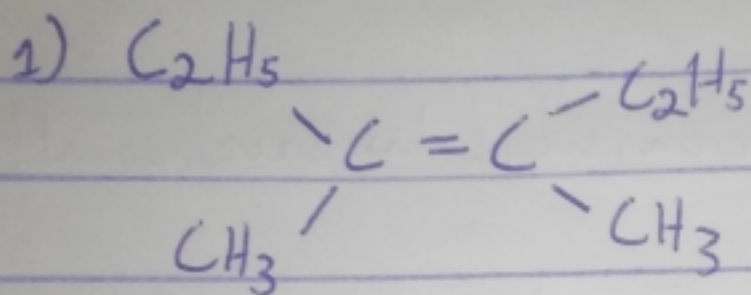 1) C₂H₅ C₂H₅
C = C
CH₃ CH₃